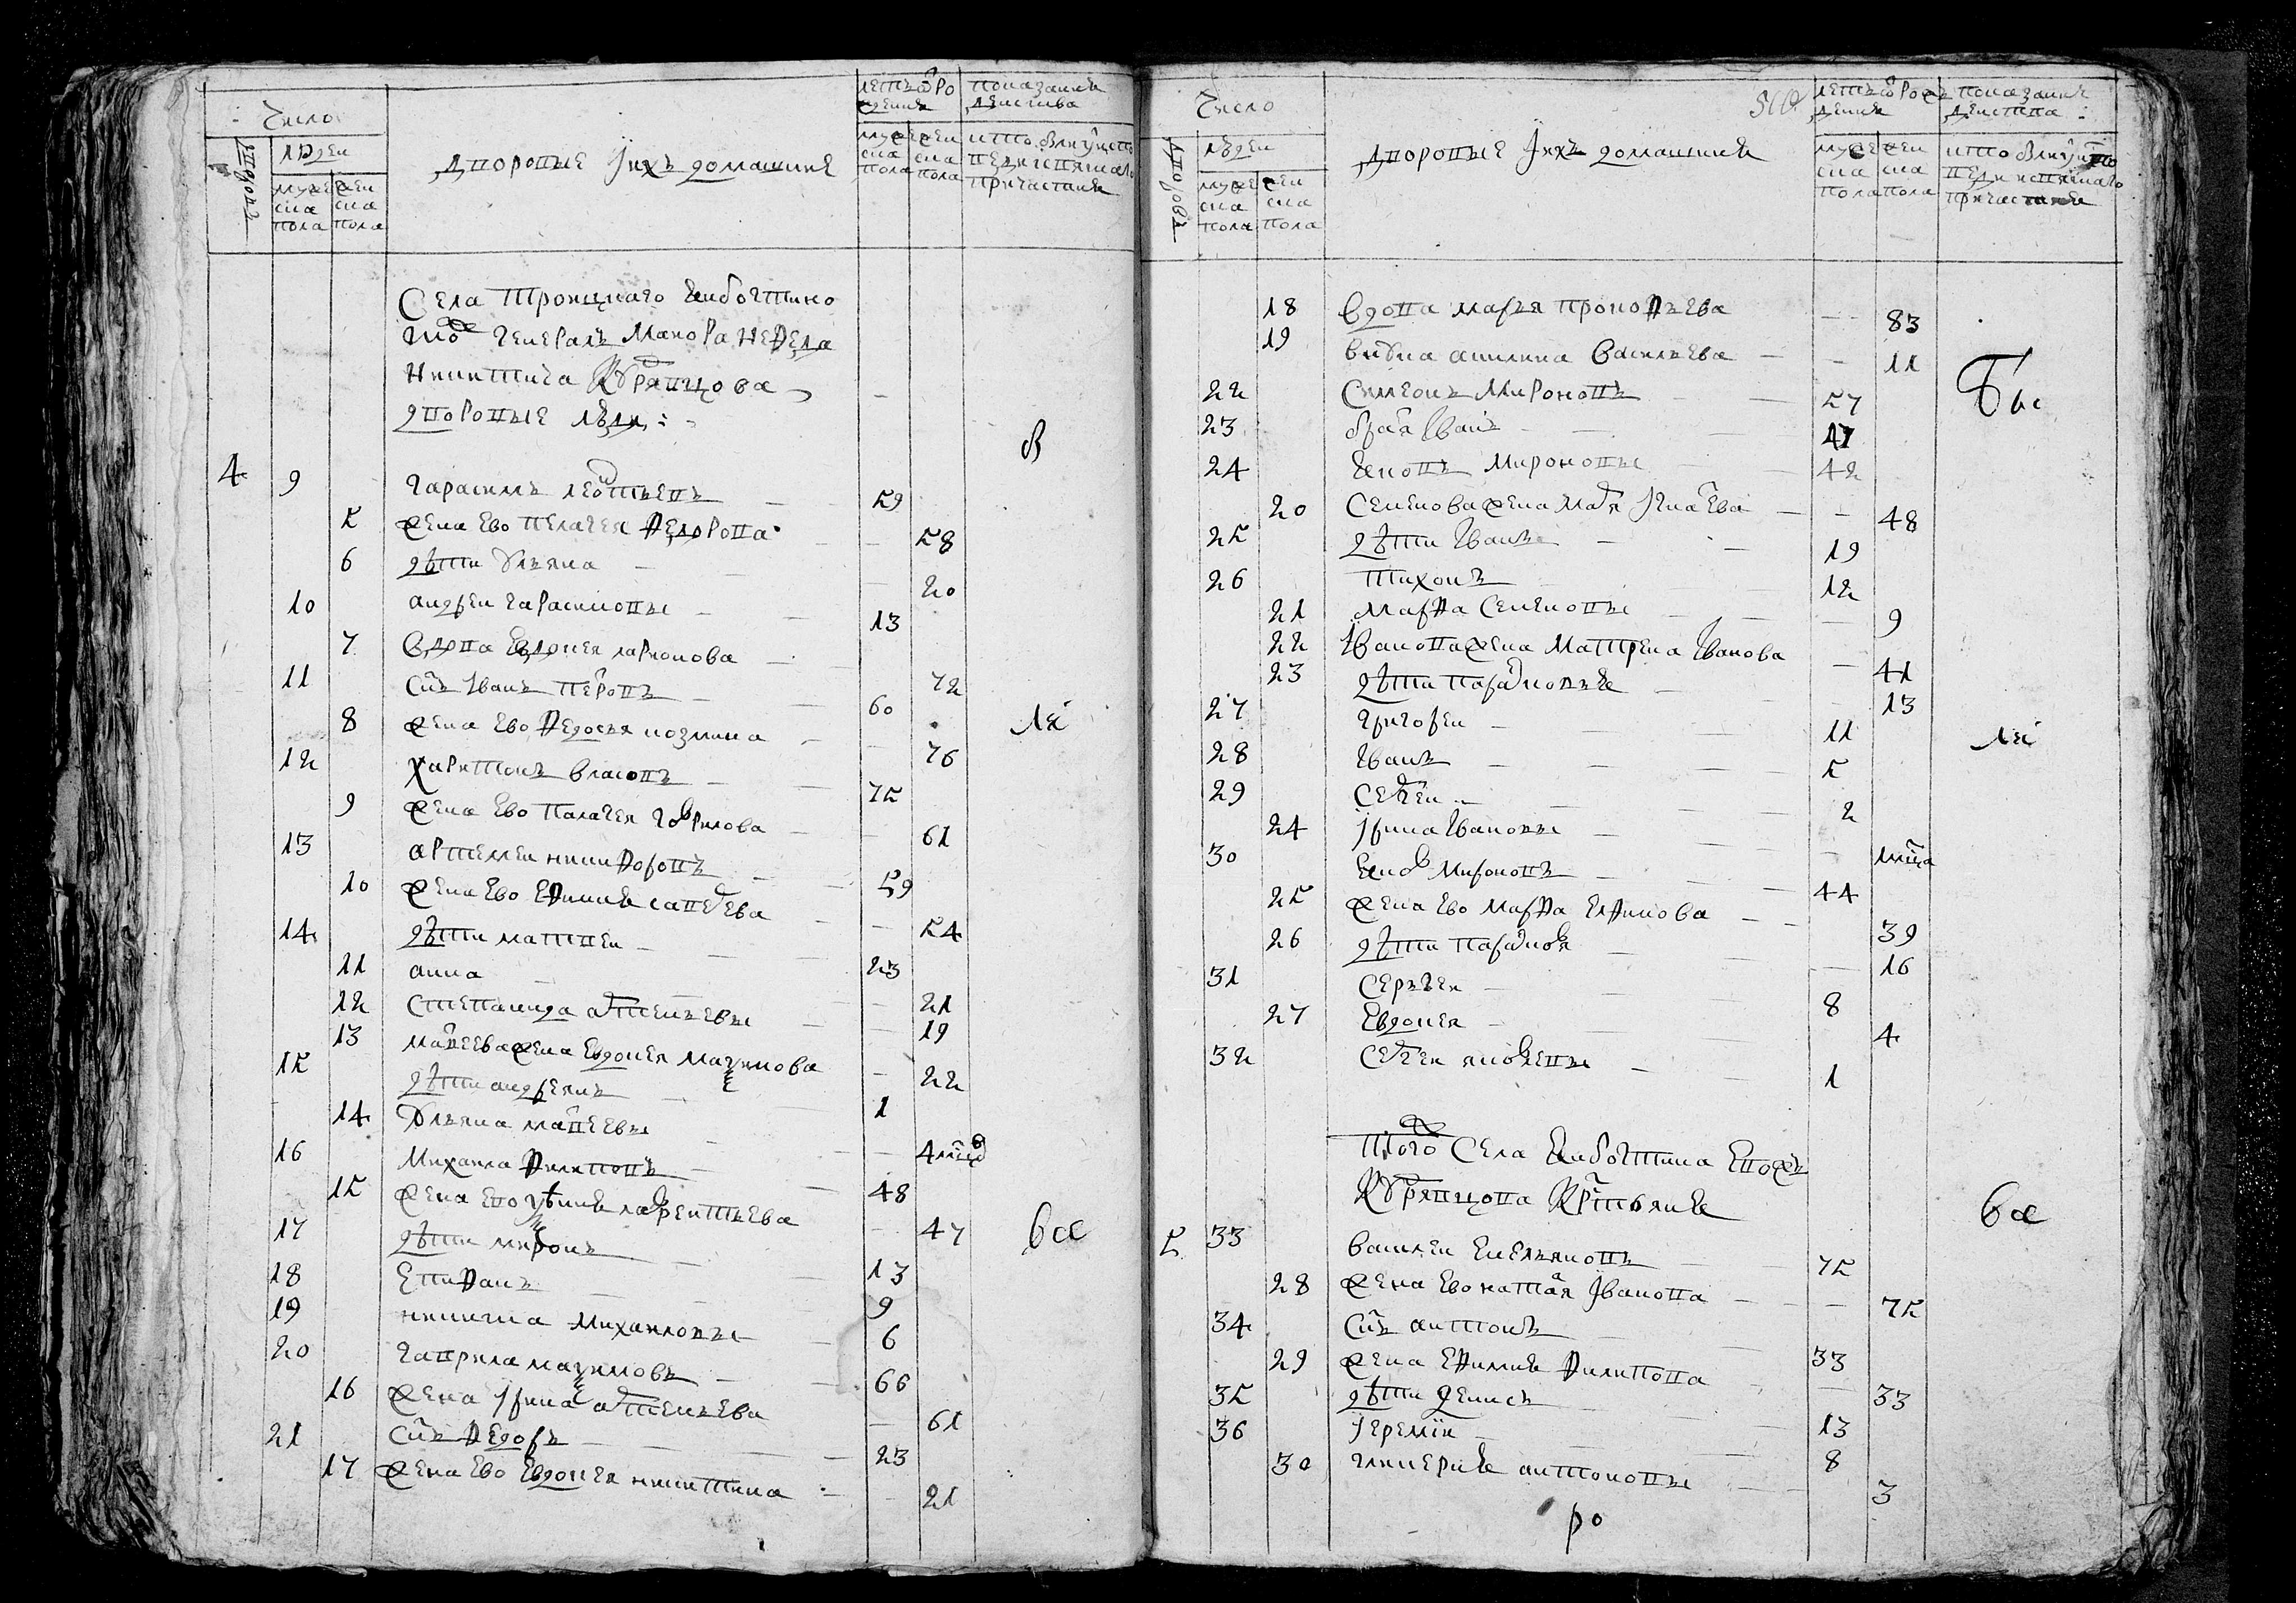 Число
дворовъ
людеи
мужеска пола
женска пола
Дворовые ихъ домашние
летъ от рождения
мужеска пола
женска пола
показание действа
кто был у исповеди и святаго причастия
Села Троицкаго
тож генералъ маиора Федела
Никитича Кудрявцова
дворовые люди:
в
4 9 Гарасимъ Леонтьевъ 59
5 жена ево Пелагея Федорова 58
6 дѣти Ульяна 20
10 Андреи Гарасимовы 13
7 вдова Евдокея Ларионова 72
11 снъ Иванъ Петровъ 60
8 жена ево Федосья Козмина 76
лі
12 Харитонъ Власовъ 75
9 жена ево Палагея Гаврилова 61
13 Артемеи Никифоровъ 59
10 жена ево Ефимия Савелева 54
14 дѣти Матвеи 23
11 Анна 21
12 Степанида Артемьевы 19
13 Матвеева жена Евдокея Маѯимова 22
15 дѣти Андреянъ 1
14 Ульяна Матвеевы 4 мсцов
16 Михаила Филиповъ 48
15 жена ево Устиния Лаврентьева 47
все
17 дѣти Миронъ 13
18 Епифанъ 9
19 Никита Михаиловы 6
20 Гаврила Маѯимовъ 66
16 жена Ирина Артемьева 61
21 снъ Федоръ 23
17 жена ево Евдокея Никитина 21
510
Число
дворовъ
людеи
мужеска пола
женска пола
Дворовые ихъ домашния
летъ от рождения
мужеска пола
женска пола
показание действа
кто был у исповеди и святаго причастия
18 вдова Марья Прокофьева 83
19 внука Акилина Васильева 11
Бы
22 Симеонъ Мироновъ 57
23 братя Иванъ 47
24 Яковъ Мироновы 42
20 Семенова жена Марья Игнатева 48
25 дѣти Иванъ 19
26 Тихонъ 12
21 Марфа Семеновы 9
22 Иванова жена Матрена Иванова 41
23 дѣти Парасковия 13
27 Григореи 11
ли
28 Иванъ 5
29 Сергеи 2
24 Ирина Ивановы мсца
30 Яковъ Мироновъ 44
25 жена ево Марфа Ефимова 39
26 дѣти Парасковя 16
31 Сергеи 8
27 Евдокея 4
32 Сергеи Яковлевы 1
Тогож села
Кудрявцова крстьяня
все
5 33 Василеи Емельяновъ 75
28 жена ево Наталя Иванова 75
34 снъ Антонъ 33
29 жена Ефимия Филипова 33
35 дѣти Денисъ 13
36 Иеремія 8
30 Гликерия Антоновы 3
ро